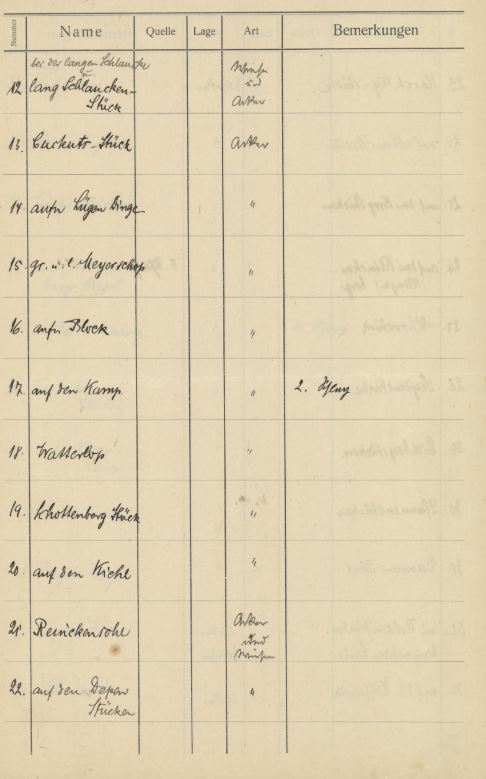 Nummer Name Quelle Lage Art Bemerkungen
bei der langen Schlaucke
12. lang Schlaucken- Wiesen und
Stück Acker
13. Stück Acker
14. aufn Lügen Dinge "
15. gr. u. kl. Meyerschop "
16. aufn Block "
17. auf den Kamp "
18. Watterlop "
19. Schottenberg Stück "
20. auf den Kiehl "
21. Reinckensohl Acker
und
Wiesen
22. auf den Depen "
Stücken